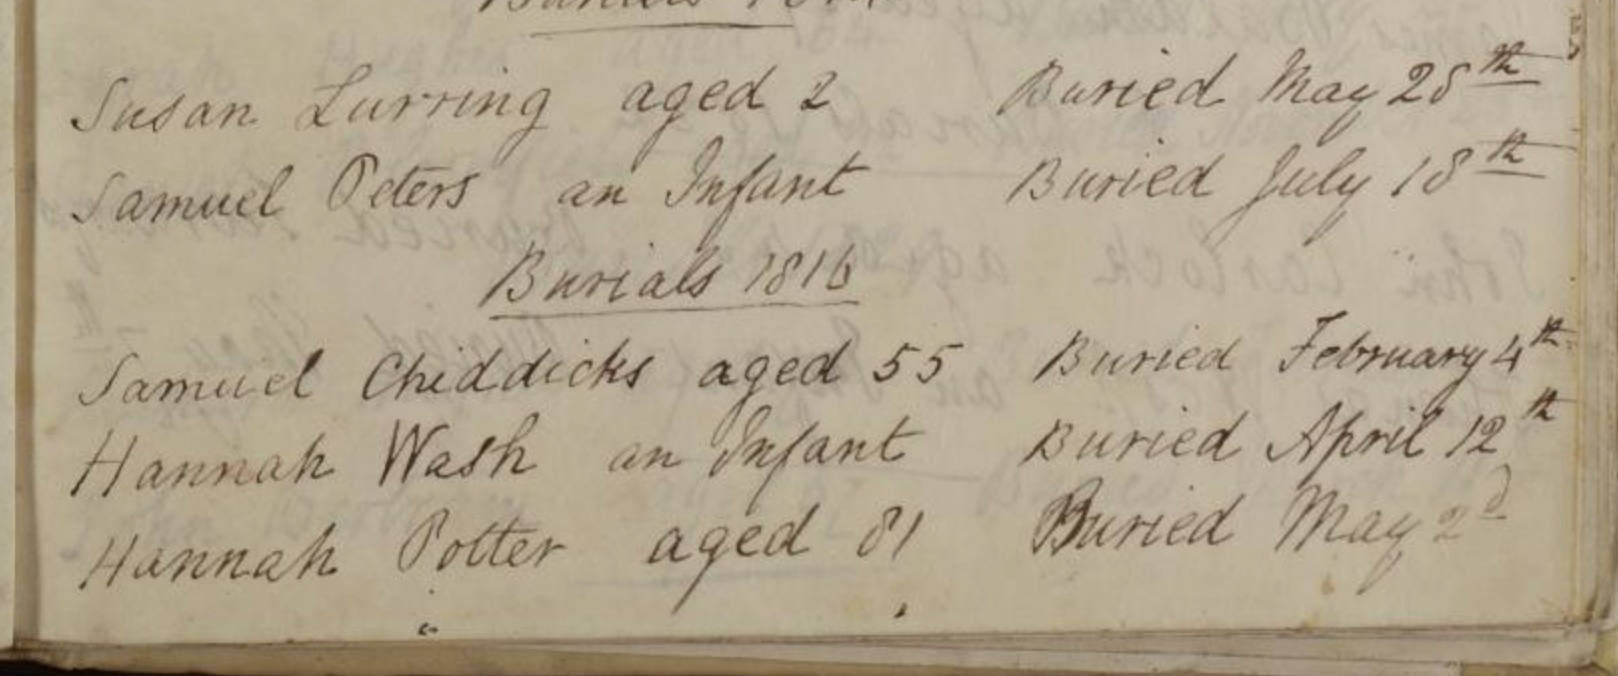 Burials
Susan Lurring aged 2 Buried May 28th
Samuel Peters an Infant Buried July 18th
Burials 1816
Samuel Chiddicks aged 55 Buried February 4th
Hannah Wash an Infant Buried April 12th
Hannah Potter aged 81 Buried May 2d